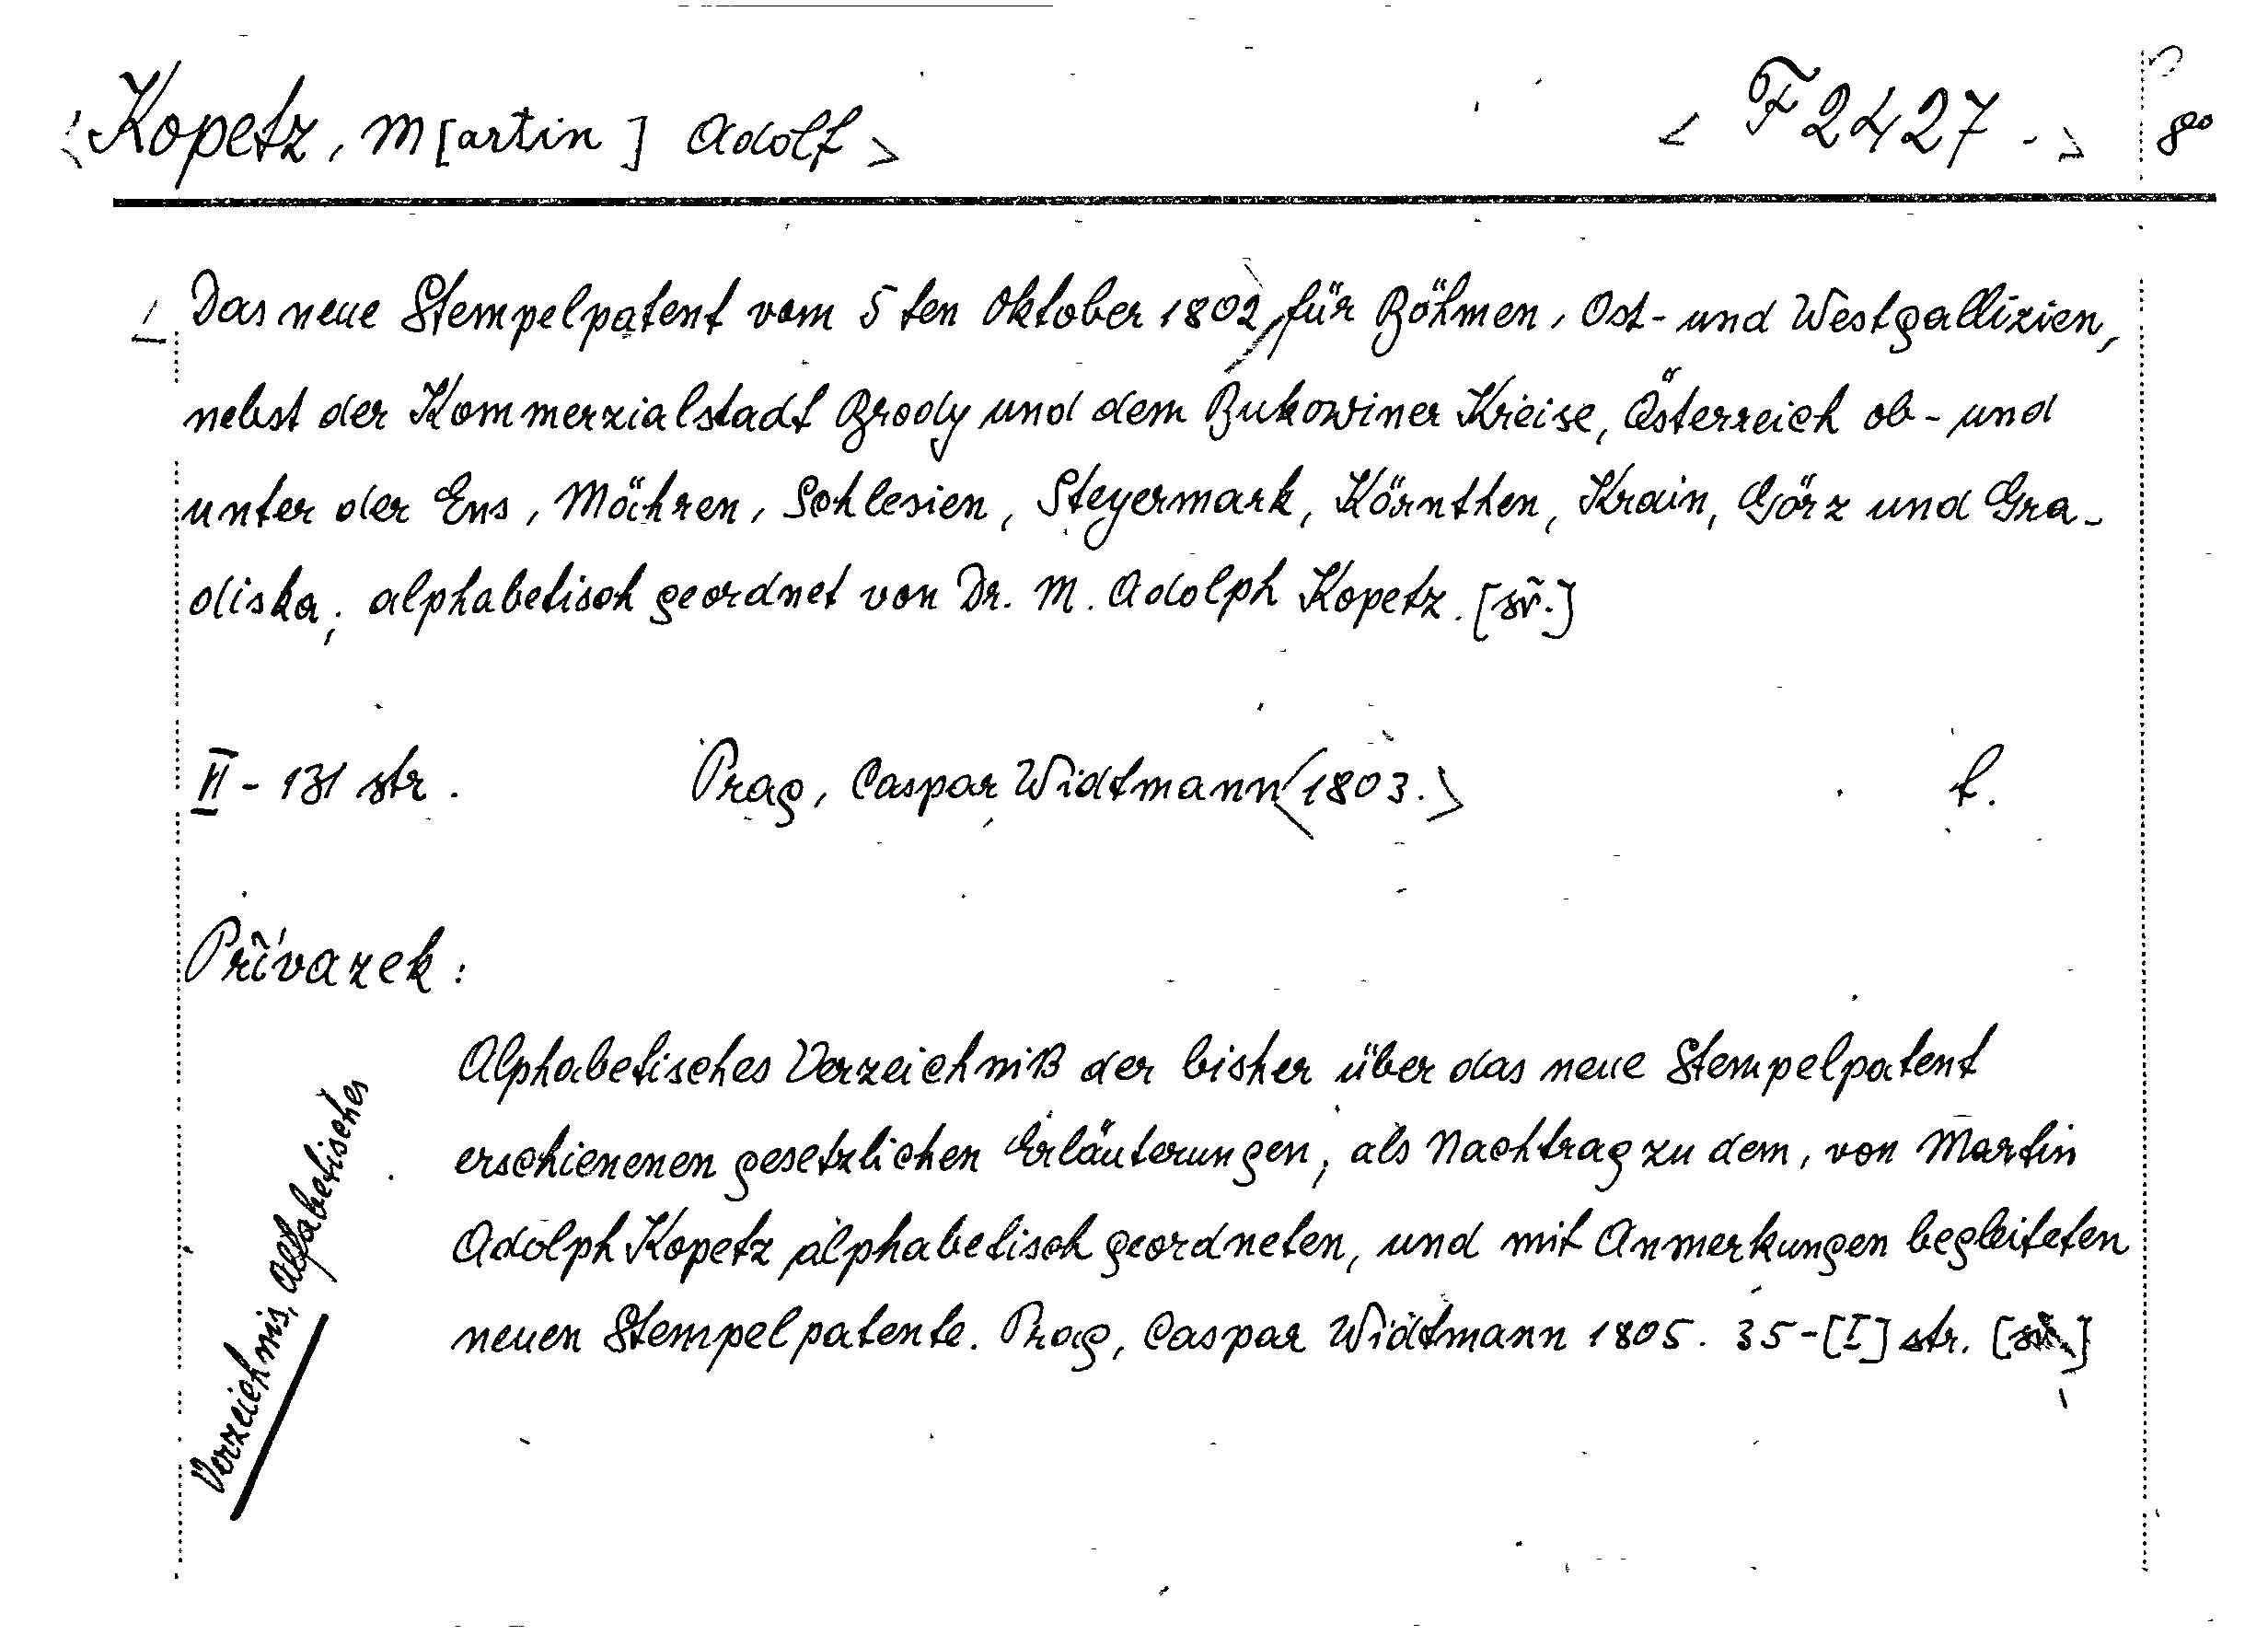 <Kopetz, M[artin] Adolf> <F 2427.> 8°
<Das neue Stempelpatent vom 5ten Oktober 1802, für Böhmen, Ost- und Westgallizien,
nebst der Kommerzialstadt Brody und dem Bukowiner Kreise, Österreich ob- und
unter der Ens, Mähren, Schlesien, Steyermark, Kärnthen, Krain, Görz und Gra-
diska; alphabetisch geordnet von Dr. M. Adolph Kopetz. [sň.]
II - 131 str. Prag, Caspar Widtmann <1803.> f.
Přívazek:
Alphabetisches Verzeichniß der bisher über das neue Stempelpatent
erschienenen gesetzlichen Erläuterungen; als Nachtrag zu dem, von Martin
Adolph Kopetz alphabetisch geordneten, und mit Anmerkungen begleiteten
neuen Stempelpatente. Prag, Caspar Widtmann 1805. 35-[I] str.
Verzeichnis, alfabetisches